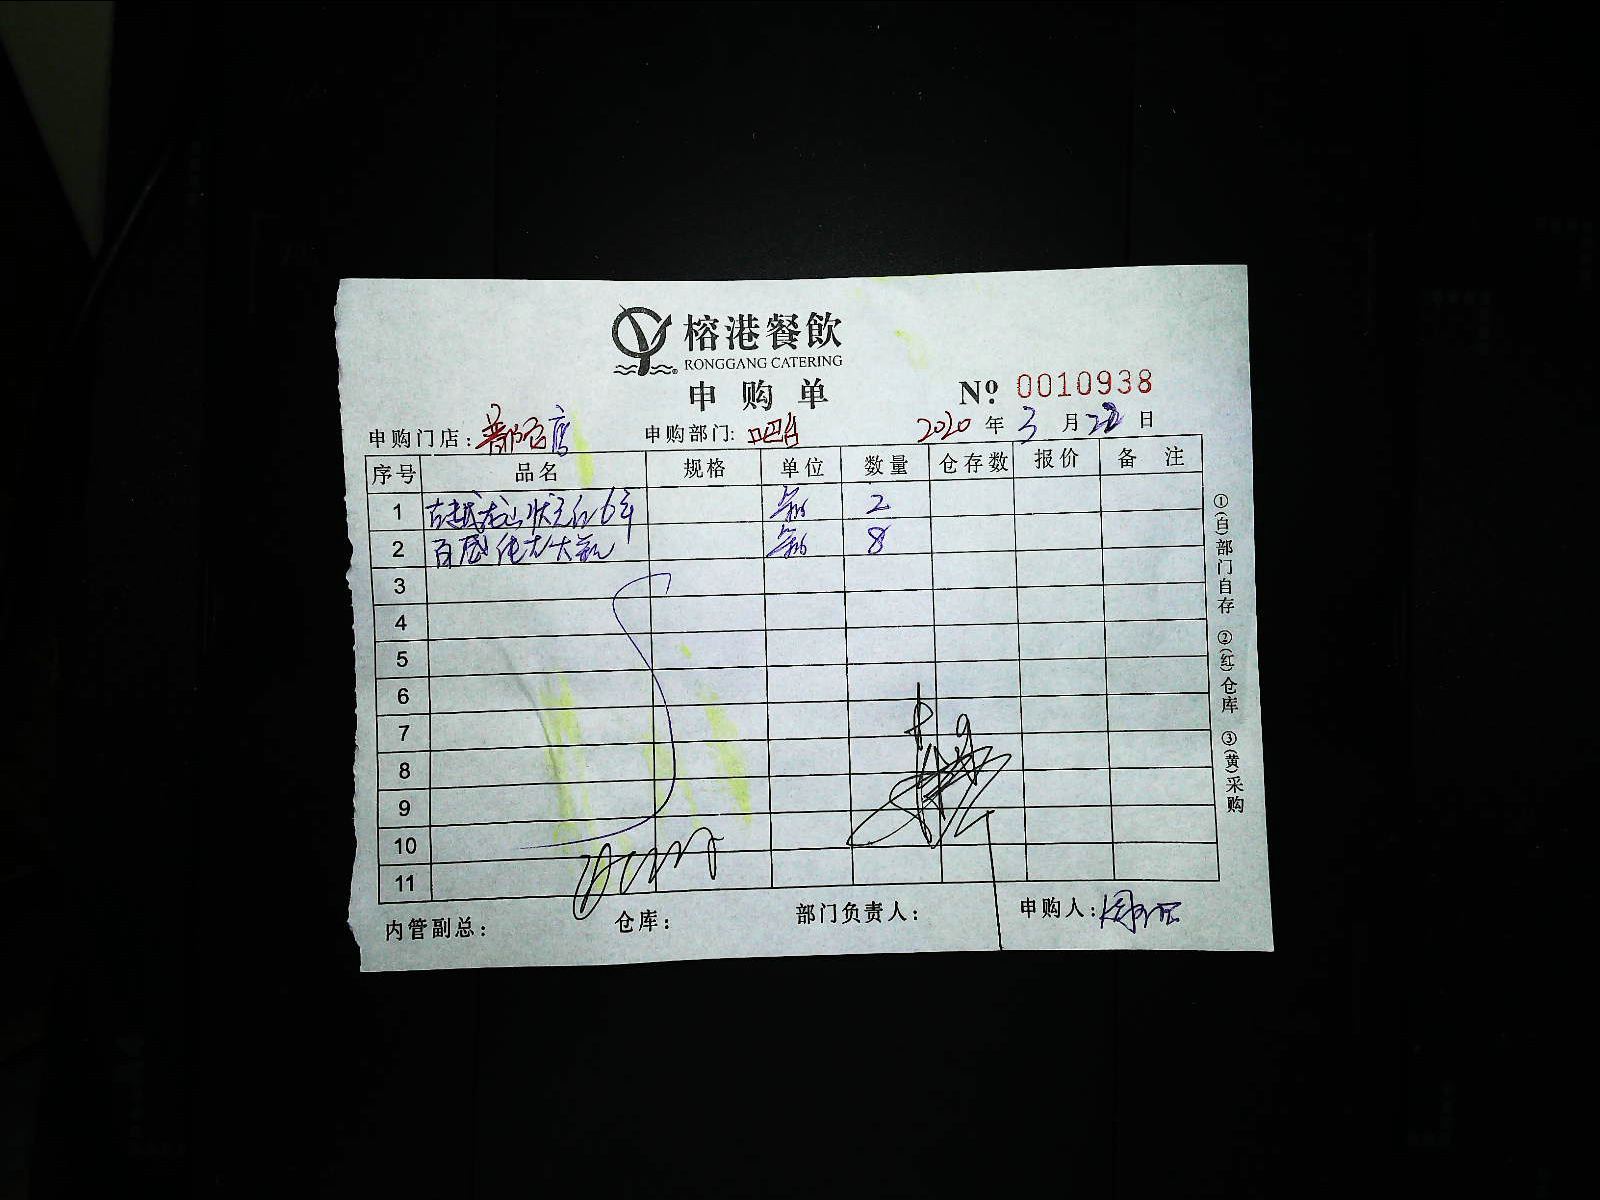 榕港餐飲
RONGGANG CATERING
申购单
№ 0010938
申购门店: 申购部门: 吧台 2020 年 3 月 22 日
序号 品名 规格 单位 数量 仓存数 报价 备 注
1 古越龙山状元红6年 箱 2
2 百威 大瓶 箱 8
3
4
5
6
7
8
9
10
11
内管副总: 仓库: 部门负责人: 申购人:
①(白)部门自存 ②(红)仓库 ③(黄)采购